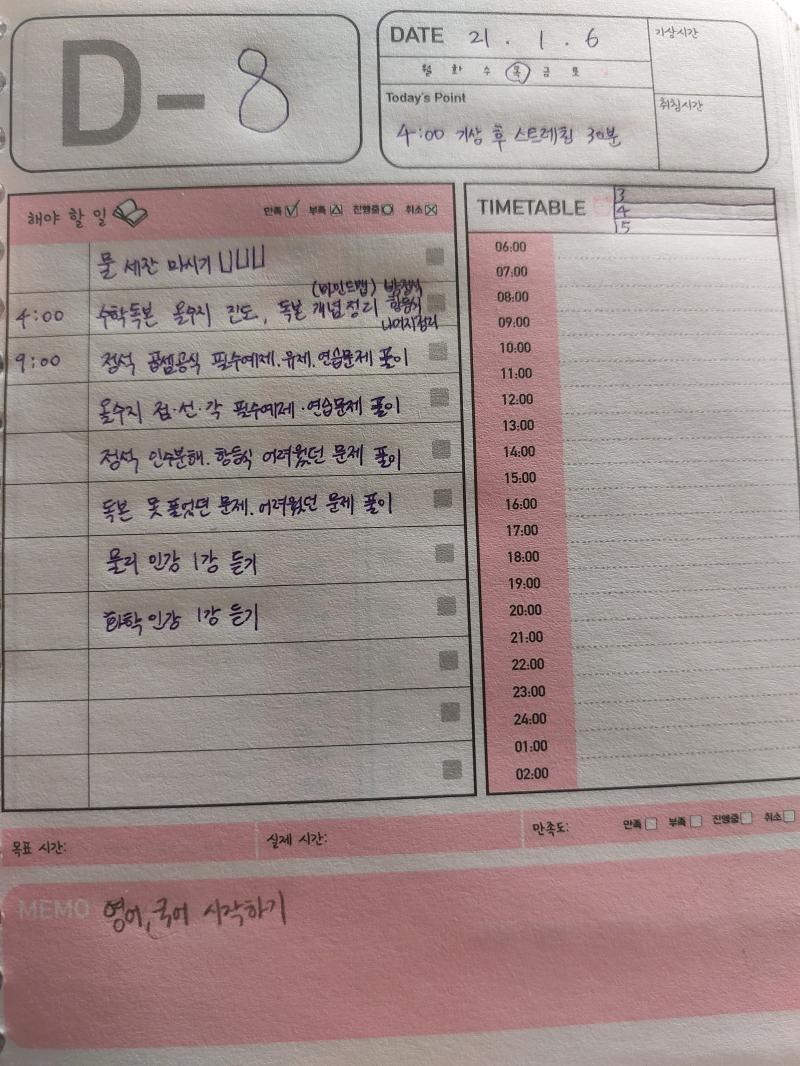 D-8
DATE 21 . 1 . 6
월 화 수 목 금 토
Today's Point
4:00 기상 후 스트레칭 30분
기상시간
취침시간
해야 할 일 만족 부족 진행중 취소
물 세잔 마시기
4:00 수학독본 올수지 진도, 독본 개념정리 (마인드맵) 방정식 항등식 나머지정리
9:00 정석 곱셈공식 필수예제. 유제. 연습문제 풀이
올수지 점·선·각 필수예제·연습문제 풀이
정석 인수분해. 항등식 어려웠던 문제 풀이
독본 못 풀었던 문제. 어려웠던 문제 풀이
물리 인강 1강 듣기
화학 인강 1강 듣기
TIMETABLE
3
4
5
06:00
07:00
08:00
09:00
10:00
11:00
12:00
13:00
14:00
15:00
16:00
17:00
18:00
19:00
20:00
21:00
22:00
23:00
24:00
01:00
02:00
목표 시간: 실제 시간: 만족도: 만족 부족 진행중 취소
MEMO 영어, 국어 시작하기